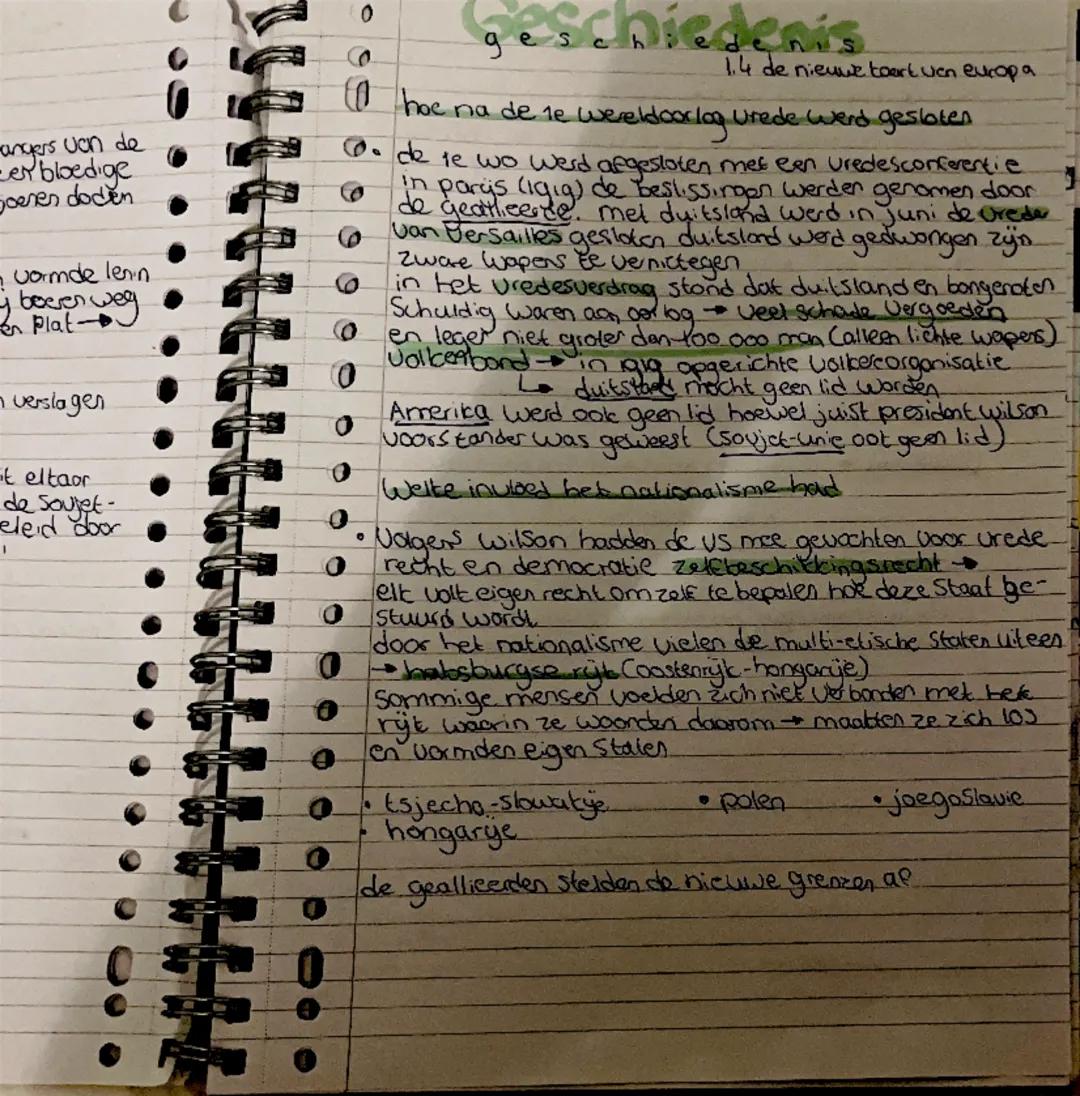 angers van de
een bloedige
joenen doden
vormde lenin
boeren weg
en plat →
verslagen
it elkaar
de Sovjet-
eleid door
Geschiedenis
geschiedenis
1.4 de nieuwe kaart van europa
hoe na de 1e wereldoorlog vrede werd gesloten
• de 1e wo werd afgesloten met een vredesconferentie
in parijs (1919) de beslissingen werden genomen door
de geallieerde. met duitsland werd in juni de vrede
van versailles gesloten duitsland werd gedwongen zijn
zware wapens te vernietegen
in het vredesverdrag stond dat duitsland en bongenoten
Schuldig waren aan oorlog → veel schade vergoeden
en leger niet groter dan 100 000 man (alleen lichte wapens)
Volkenbond → in 1919 opgerichte volkerenorganisatie
↳ duitsland mocht geen lid worden
Amerika werd ook geen lid hoewel juist president wilson
voorstander was geweest (sovjet-unie ook geen lid)
Welke invloed het nationalisme had
• Volgens wilson hadden de VS mee gevochten voor vrede
recht en democratie zelfbeschikkingsrecht →
elk volk eigen recht om zelf te bepalen hoe deze Staat ge-
stuurd wordt
door het nationalisme vielen de multi-etische staten uiteen
→ habsburgse rijk (oostenrijk-hongarije)
Sommige mensen voelden zich niet verbonden met het
rijk waarin ze woonden daarom → maakten ze zich los
en vormden eigen Staten
• tsjecho-slowakije • polen • joegoslavie
• hongarije
de geallieerden stelden de nieuwe grenzen af